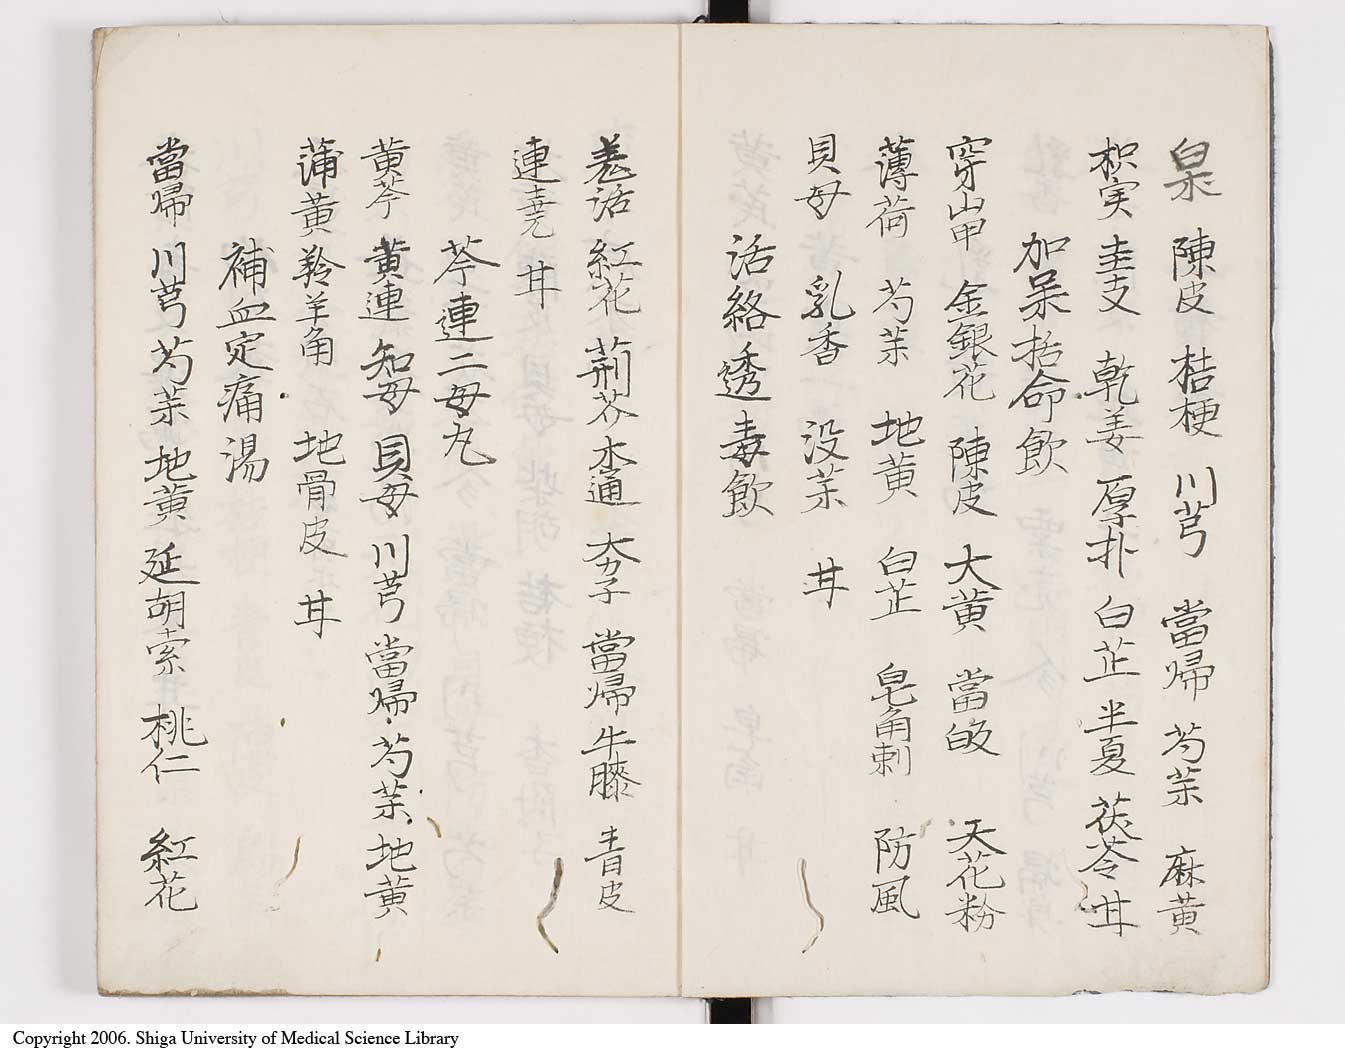 皃 陳皮 桔梗 川芎 當歸 芍茱 麻黄
枳実 圭支 乾姜 厚扑 白芷 半夏 茯苓 甘
加呆括命飲
穿山甲 金銀花 陳皮 大黄 當皈 天花粉
薄荷 芍茱 地黄 白芷 皂角刺 防風
貝母 乳香 没茱 甘
活絡透毒飲
羌活 紅花 荊芥 木通 大力子 當帰 牛膝 青皮
連堯 甘
芩連二母丸
黄芩 黄連 知母 貝母 川芎 當帰 芍茱 地黄
蒲黄 羚羊角 地骨皮 甘
補血定痛湯
當帰 川芎 芍茱 地黄 延胡索 桃仁 紅花
Copyright 2006. Shiga University of Medical Science Library